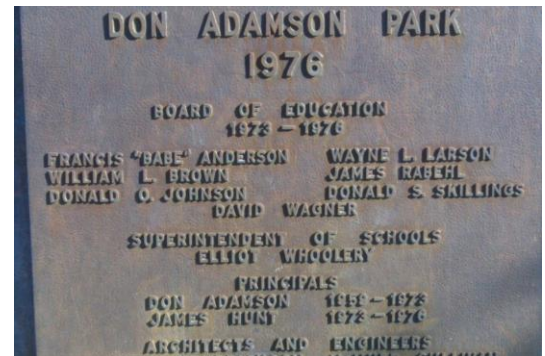 DON ADAMSON PARK
1976
BOARD OF EDUCATION
1973 – 1976
FRANCIS "BABE" ANDERSON WAYNE L. LARSON
WILLIAM L. BROWN JAMES RABEHL
DONALD O. JOHNSON DONALD S. SKILLINGS
DAVID WAGNER
SUPERINTENDENT OF SCHOOLS
ELLIOT WHOOLERY
PRINCIPALS
DON ADAMSON 1959 – 1973
JAMES HUNT 1973 – 1976
ARCHITECTS AND ENGINEERS